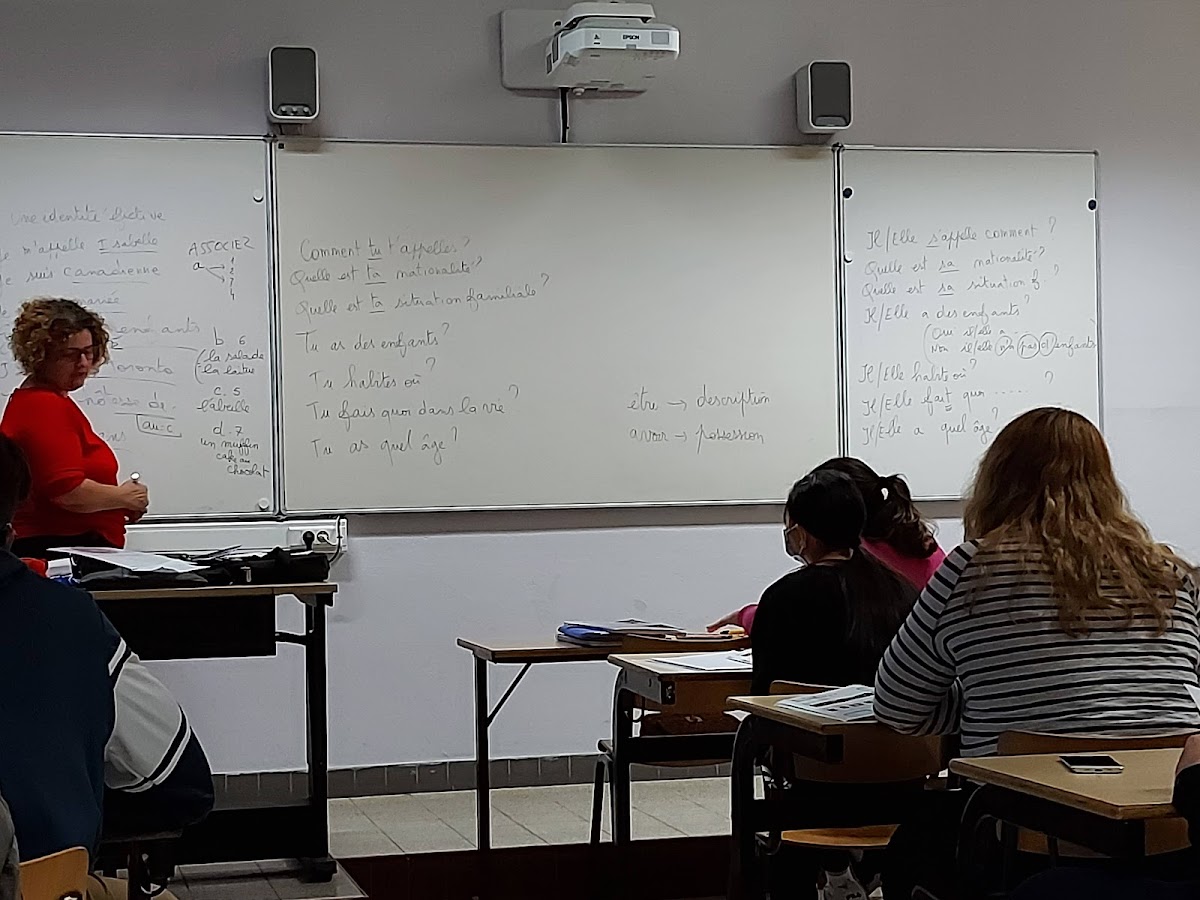 EPSON
une identité fictive
m'appelle Isabelle
suis canadienne
mariée
Toronto
de
au: c
ASSOCIEZ
a 1
2
4
b 6
la salade
la laitue
c. 5
l'abeille
d. 7
un muffin
cake au
chocolat
Comment tu t'appelles?
Quelle est ta nationalité?
Quelle est ta situation familiale?
Tu as des enfants?
Tu habites où?
Tu fais quoi dans la vie?
Tu as quel âge?
être → description
avoir → possession
Il/Elle s'appelle comment?
Quelle est sa nationalité?
Quelle est sa situation f?
Il/Elle a des enfants?
Oui il/elle a ...
Non il/elle n'a pas d'enfants
Il/Elle habite où?
Il/Elle fait quoi ..... ?
Il/Elle a quel âge?